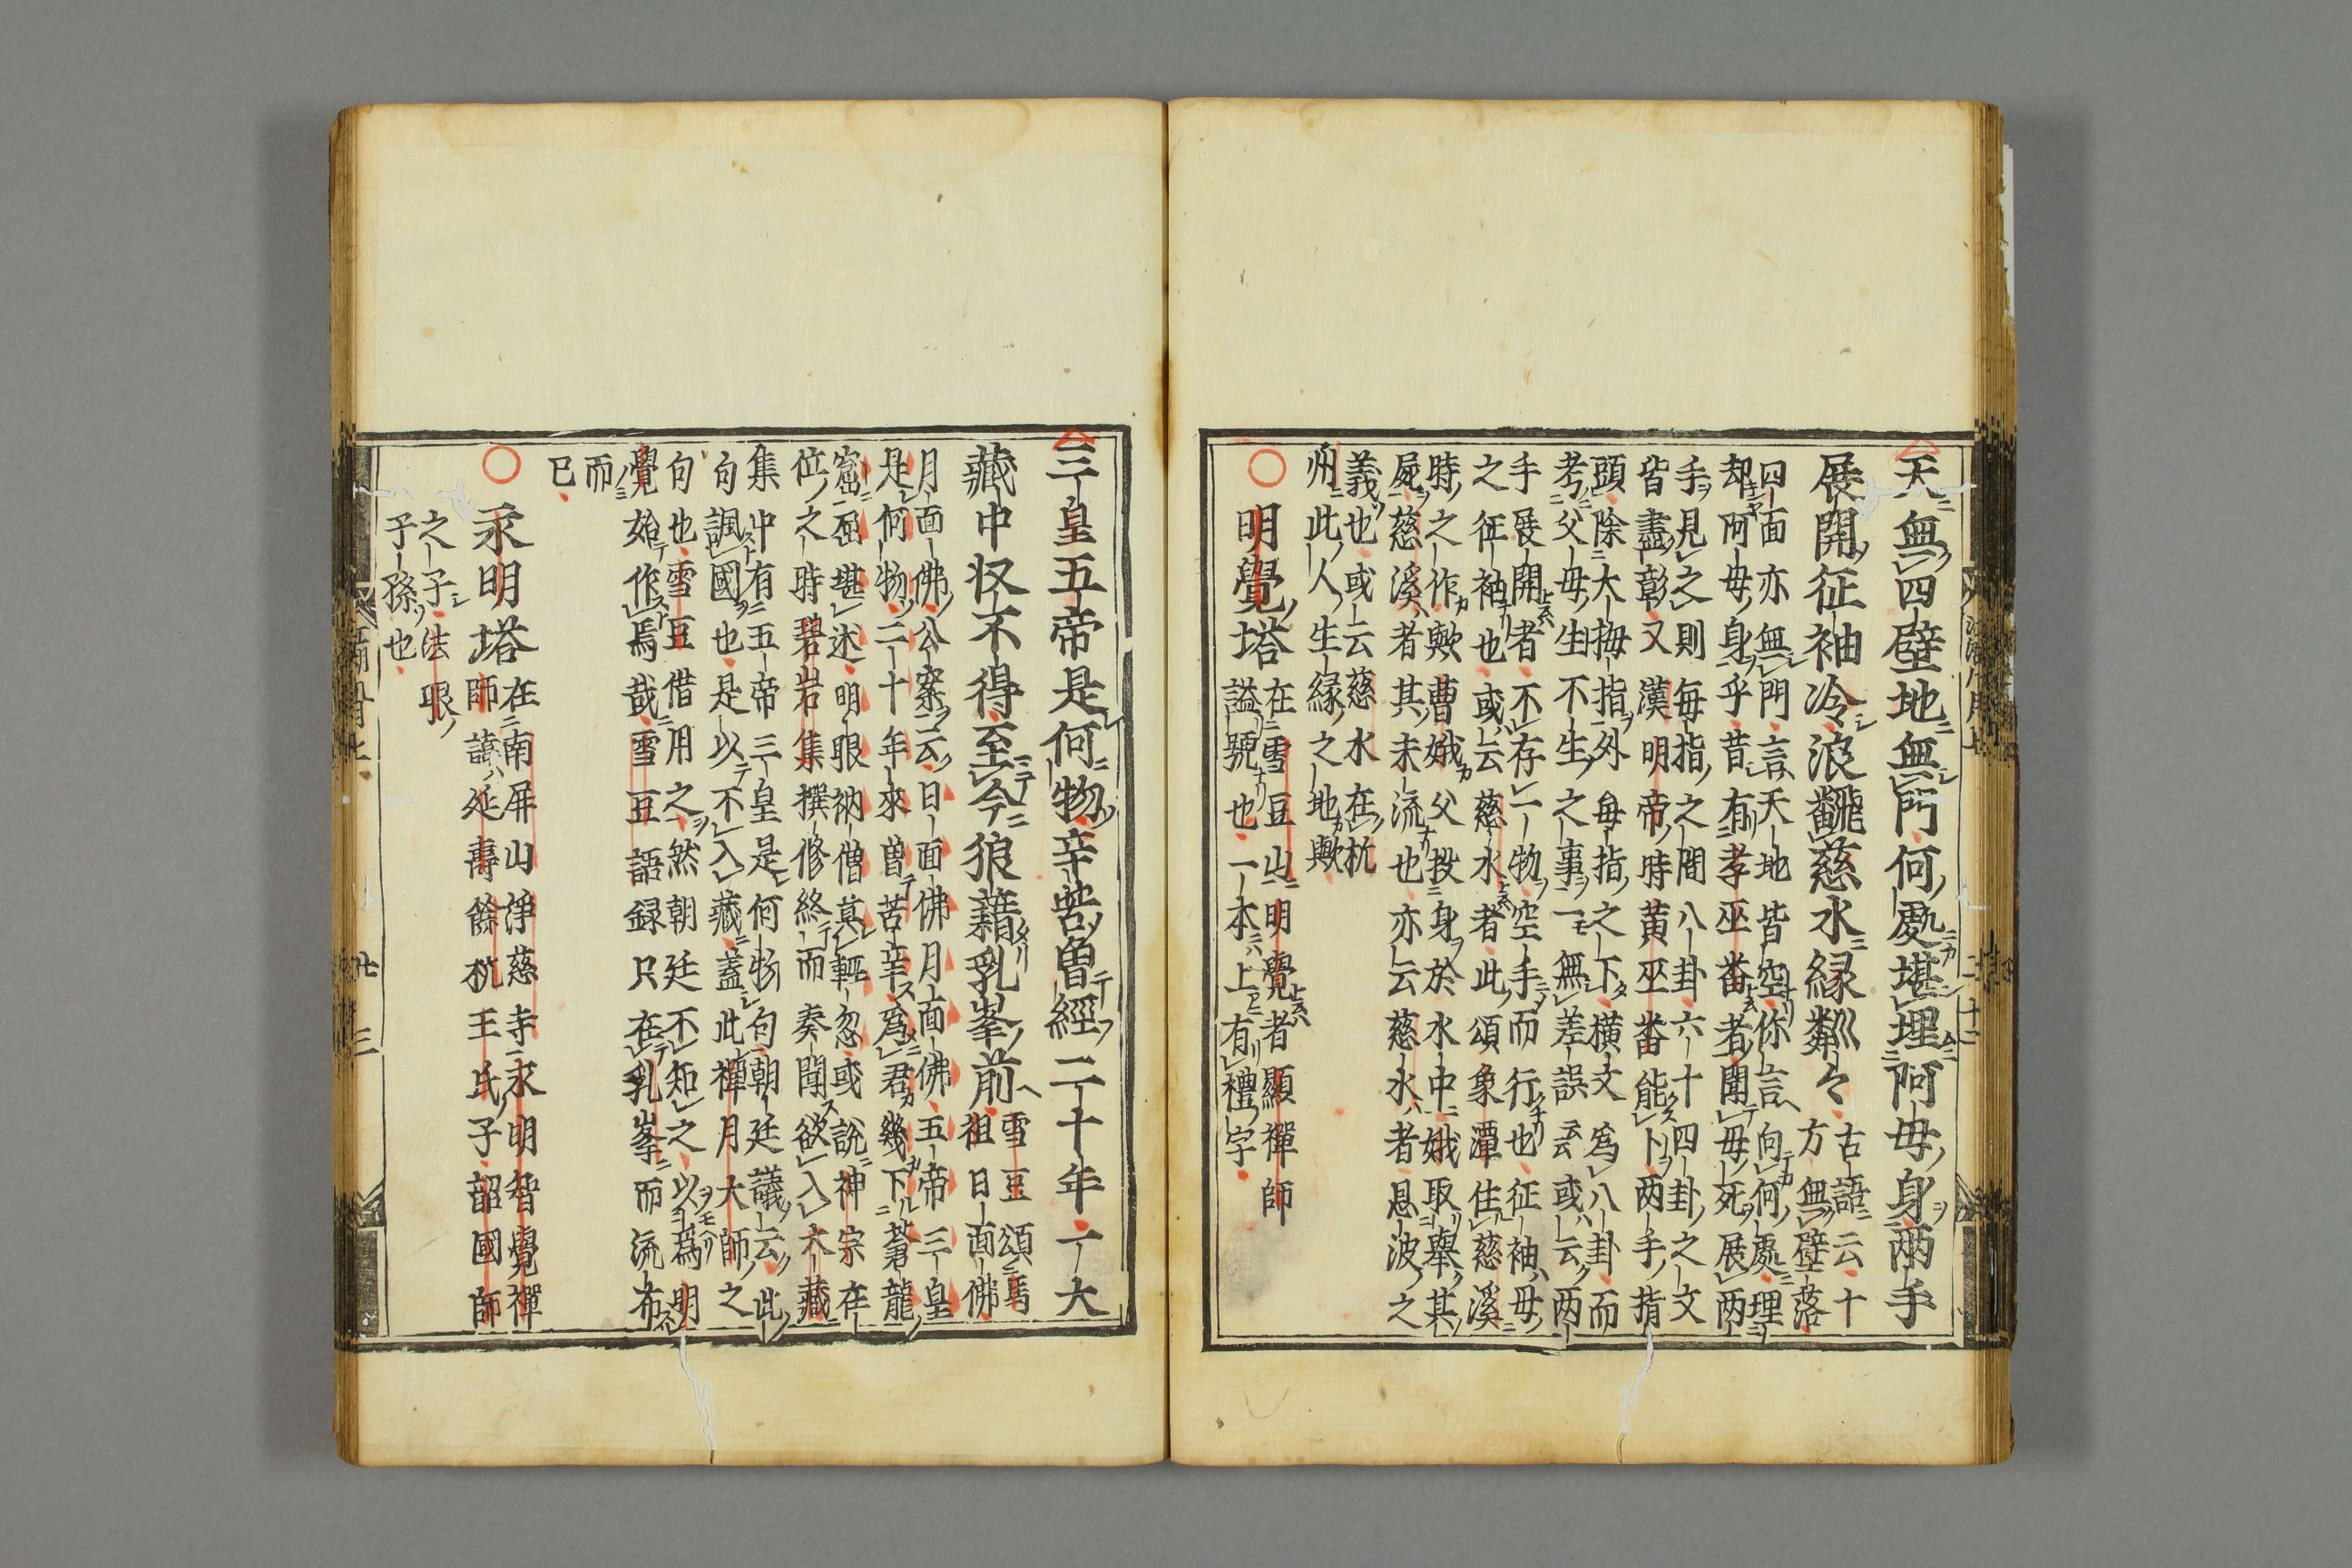 天無四壁地無門何處堪埋阿母身兩手
展開征袖冷浪飜慈水緑粼々
古語云十
方無壁落
四面亦無門言天地皆空你言向何處埋
却阿母身乎昔有孝巫畨者聞母死展両
手見之則毎指之間八卦六十四卦之文
皆盡彰又漢明帝時黄巫畨能卜両手指
頭除大拇指外毎指之下横文為八卦而
考父母生不生之事一無差誤云云或云両
手展開者不存一物空手而行也征袖母
之征袖也或云慈水者此頌象潭住慈溪
時之作歟曹娥父投身於水中娥取擧其
屍慈溪者其末流也亦云慈水者恩波之
義也或云慈水在杭
州此人生縁之地歟
○明覺塔
在雪豆山明覺者顯禪師
謚號也一本上有禮字
三皇五帝是何物辛苦曽經二十年一大
藏中収不得至今狼藉乳峯前
雪豆頌馬
祖日面佛
月面佛公案云日面佛月面佛五帝三皇
是何物二十年來曽苦辛爲君幾下蒼龍
窟屈堪述明眼衲僧莫輕忽或説神宗在
位之時碧岩集撰修終而奏聞欲入大藏
集中有五帝三皇是何物句朝廷議云此
句諷國也是以不入藏蓋此禪月大師之
句也雪豆借用之然朝廷不知之以爲明
覺始作焉哉雪豆語録只在乳峯而流布
而
已
○永明塔
在南屏山淨慈寺永明智覺禪
師諱延壽餘杭王氏子韶國師
之子法眼
子孫也
廿三